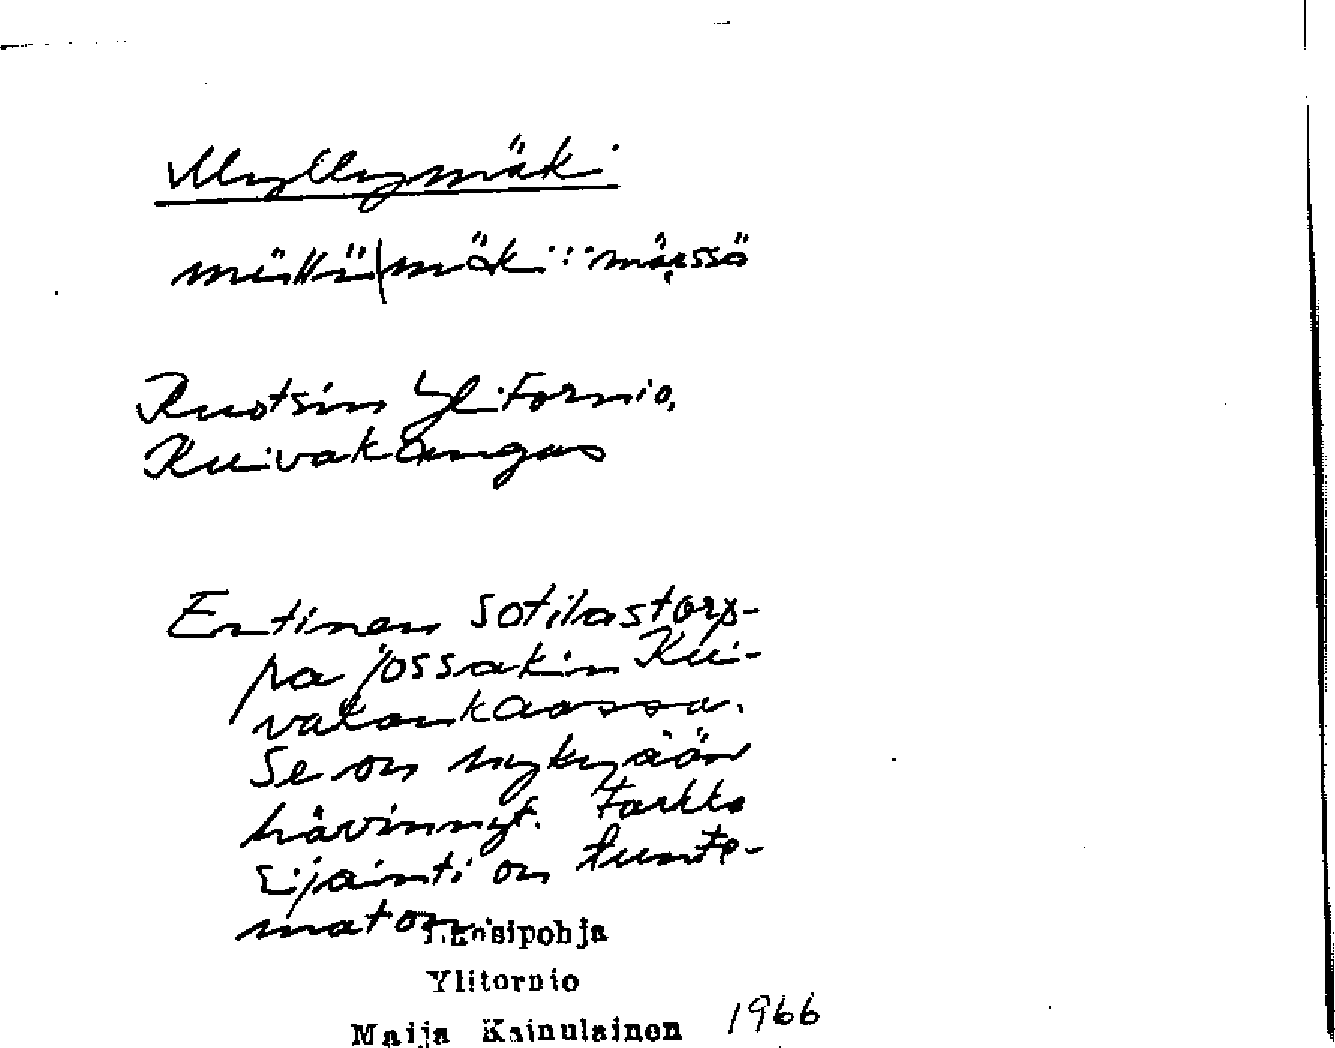 Myllymäki
müllü|mäki : mäessä
Ruotsin Ylitornio,
Kuivakangas
Entinen sotilastorp-
pa jossakin Kui-
vakankaassa.
Se on nykyään
hävinnyt. Tarkka
sijainti on tunte-
maton.
Länsipohja
Ylitornio
Maija Kainulainen 1966